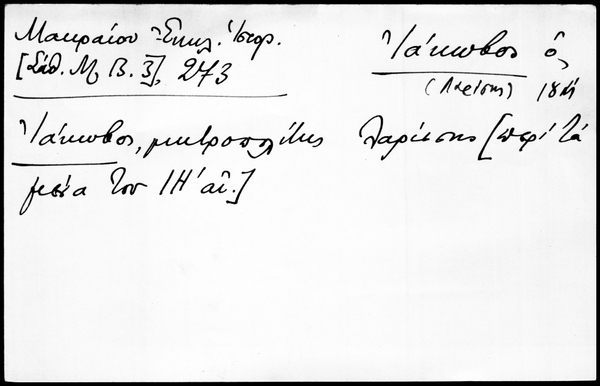 Μακραίου Ἐκκλ. Ἱστορ.
[Σάθ. Μ. Β. 3], 273
Ἰάκωβος ὁ,
(Λαρίσης) 18
Ἰάκωβος, μητροπολίτης Λαρίσσης [περὶ τὰ
μέσα τοῦ ΙΗ´ αἰ.]